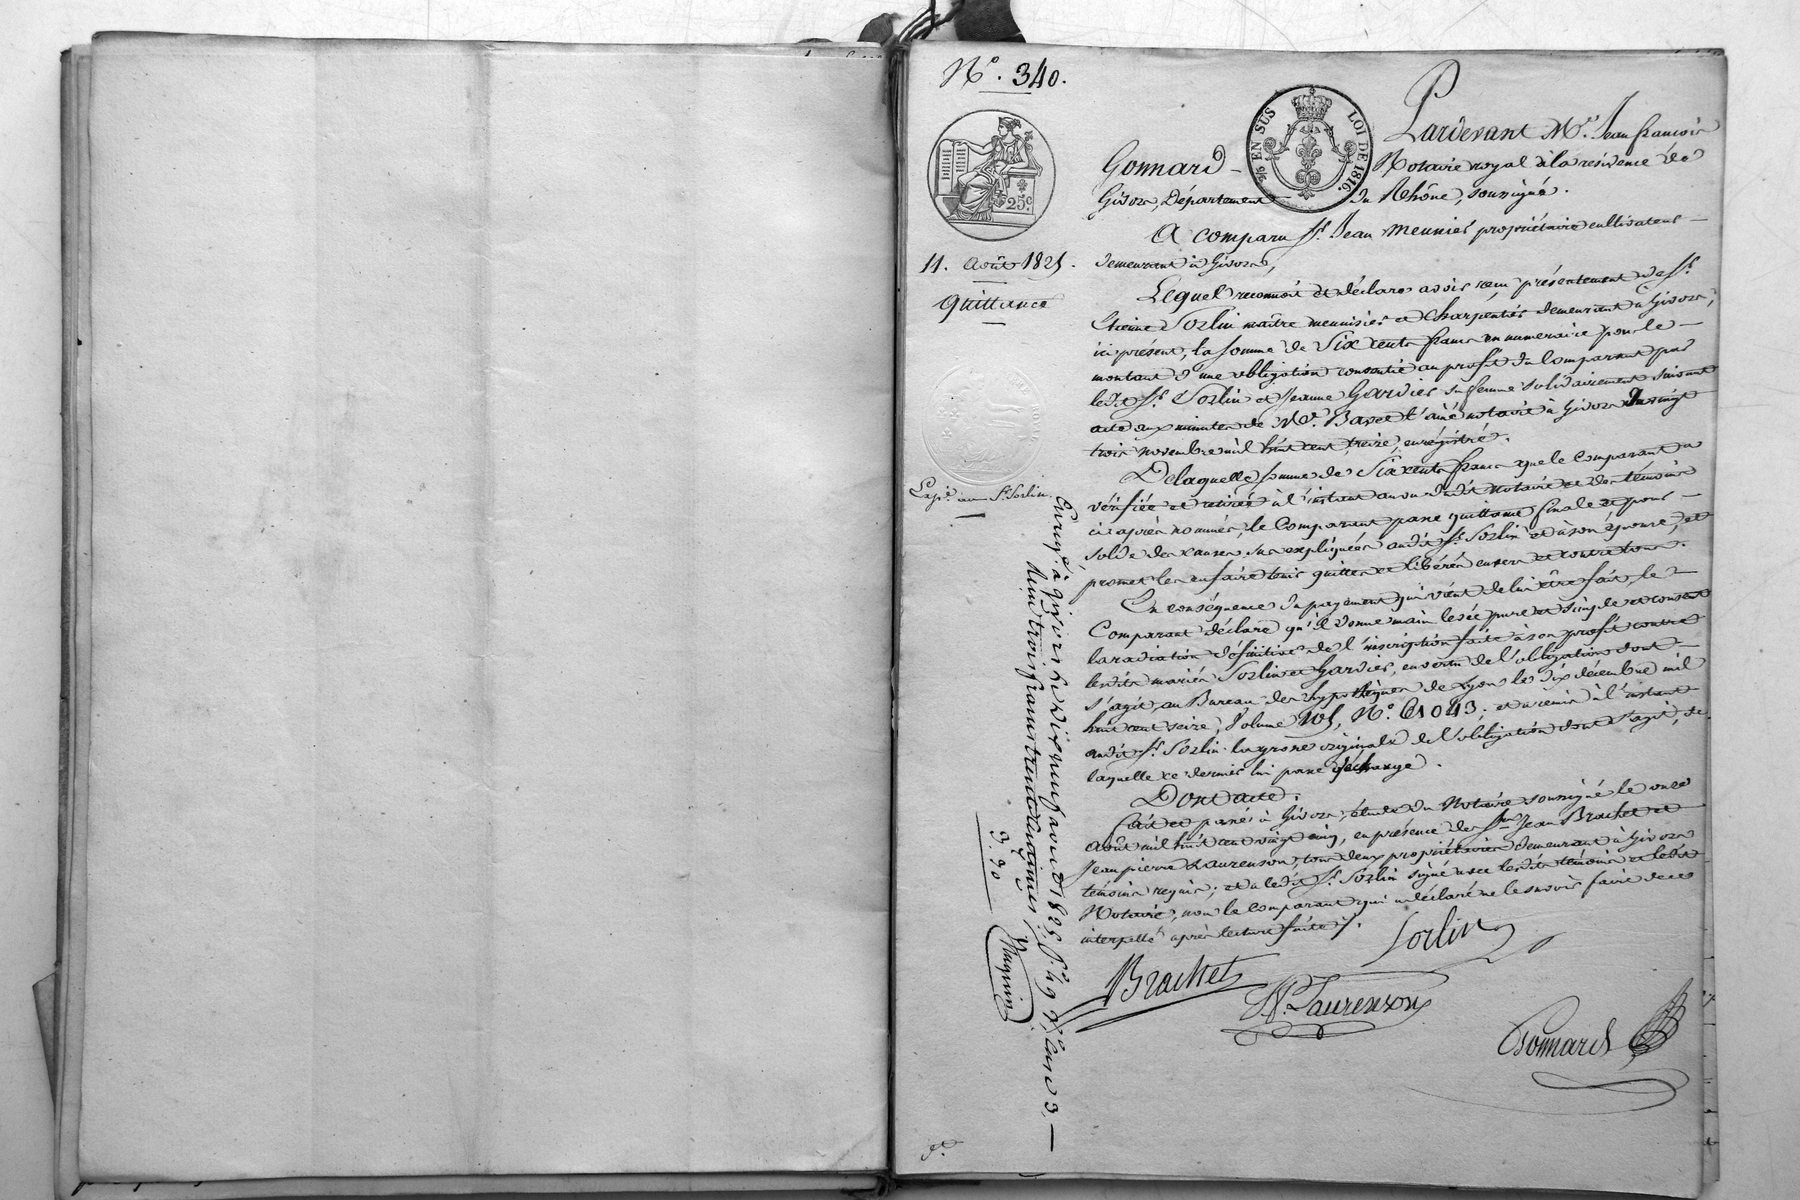 N.° 340.
EN SUS
LOI DE 1816.
25 c.
11. Août 1825.
Quittance
Expé. au Sr. Sorlin.
Pardevant Me. Jean françois
Gonnard Notaire royal à la residence de
Givors, Département du Rhône, soussigné.
A comparu Sr. Jean Meunier propriétaire cultivateur
demeurant à Givors,
Lequel reconnoit et déclare avoir reçu présentement de Sr.
Etienne Sorlin maître menuisier et charpentier demeurant à Givors,
ici présent, la somme de Six cents francs en numeraire pour le
montant d'une obligation consentie au profit du Comparant par
ledit Sr. Sorlin et Jeanne Gardier sa femme solidairement suivant
acte aux minutes de Me. Basset l'ainé notaire à Givors du vingt
trois novembre mil huit cent treize, enregistré.
De laquelle somme de Six cents francs que le Comparant a
vérifiée et retirée à l'instant au vu dudit notaire et des témoins
ci après nommés, le Comparant passe quittance finale et pour
solde des causes sus expliquées audit Sr. Sorlin et à son épouse, et
promet les en faire tenir quittes et libérés envers et contre tous.
En conséquence du payement qui vient de lui être fait, le
Comparant déclare qu'il donne main levée pure et simple et consent
la radiation définitive de l'inscription faite à son profit contre
lesdits mariés Sorlin et Gardier, en vertu de l'obligation dont
s'agit, au Bureau des hypothèques de Lyon le dix décembre mil
huit cent seize, Volume 105, N°. et a remis à l'instant
audit Sr. Sorlin la grosse originale de l'obligation dont s'agit, de
laquelle ce dernier lui passe décharge.
Dont acte.
fait et passé à Givors, étude du Notaire soussigné le onze
Août mil huit cent vingt cinq, en présence de Srs. Jean Brachet et
Jean pierre Laurenson, tous deux propriétaires demeurant à Givors
témoins requis; et a ledit Sr. Sorlin signé avec lesdits témoins et ledit
Notaire, non le comparant qui a déclaré ne le savoir faire de ce
interpellé après lecture faite.
Sorlin
Brachet
J. P. Laurenson
Gonnard
Enregé. à givors le dix neuf aout 1825. fo. 49 Ro. Case 3.
Reçu trois francs trente centimes
3. 30